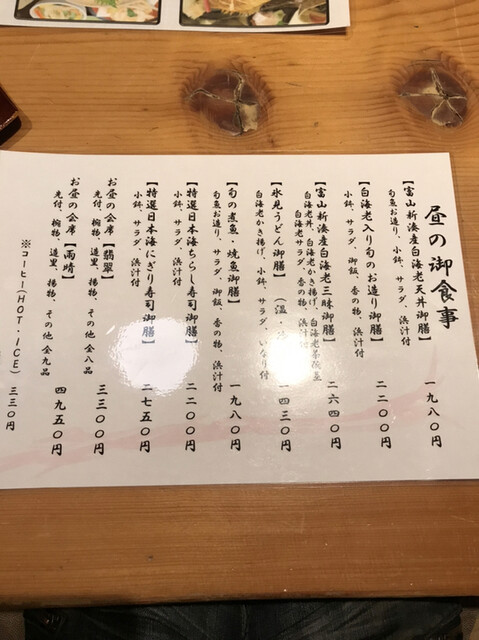 昼の御食事
【富山新湊産白海老天丼御膳】 一九八〇円
旬魚お造り、小鉢、サラダ、浜汁付
【白海老入り旬のお造り御膳】 二二〇〇円
小鉢、サラダ、御飯、香の物、浜汁付
【富山新湊産白海老三昧御膳】 二六四〇円
白海老丼、白海老かき揚げ、白海老昆布〆
白海老サラダ、香の物、浜汁付
【氷見うどん御膳】（温・ 一四三〇円
白海老かき揚げ、小鉢、サラダ、いなり付
【旬の煮魚・焼魚御膳】 一九八〇円
旬魚お造り、サラダ、御飯、香の物、浜汁付
【特選日本海ちらし寿司御膳】 二二〇〇円
小鉢、サラダ、浜汁付
【特選日本海にぎり寿司御膳】 二七五〇円
小鉢、サラダ、浜汁付
お昼の会席【翡翠】 三三〇〇円
先付、椀物、造里、揚物、その他全八品
お昼の会席【雨晴】 四九五〇円
先付、椀物、造里、揚物、その他全九品
※コーヒー（HOT・ICE） 三三〇円